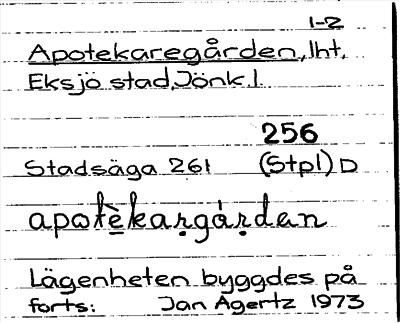 1-2
Apotekaregården, lht,
Eksjö stad, Jönk. l.
256
Stadsäga 261 (Stpl) D
apotèkaṛgåṛdan
Lägenheten byggdes på
forts: Jan Agertz 1973